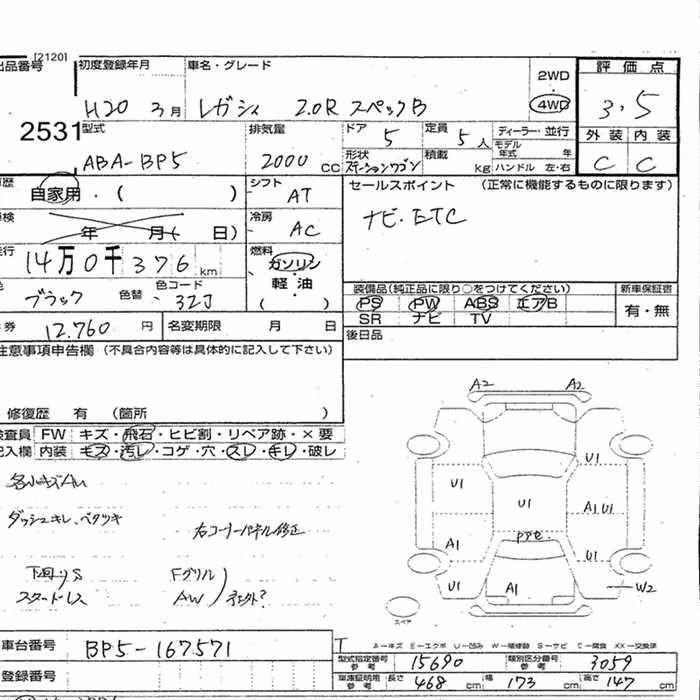 [2120]
出品番号 初度登録年月 車名・グレード 2WD 評価点
H20 3月 レガシィ 2.0R スペックB 4WD 3.5
2531 型式 排気量 ドア 5 定員 5人 ディーラー・並行 外装 内装
ABA-BP5 2000cc 形状 ステーションワゴン 積載 kg モデル年式 年 ハンドル 左・右 C C
歴 自家用・( ) シフト AT セールスポイント (正常に機能するものに限ります)
車検 年 月( 日) 冷房 AC ナビ・ETC
走行 14万0千376km 燃料 ガソリン
色 ブラック 色替 色コード 32J 軽油 ( ) 装備品(純正品に限り○をつけてください) 新車保証書
PS PW ABS エアB 有・無
SR ナビ TV
券 12,760円 名変期限 月 日 後日品
注意事項申告欄 (不具合内容等は具体的に記入して下さい)
修復歴 有 (箇所 )
検査員 FW キズ・飛石・ヒビ割・リペア跡・×要
記入欄 内装 キズ・汚レ・コゲ・穴・スレ・キレ・破レ
各小キズAU
ダッシュキレ、ベタツキ
右コーナーパネル修正
下回りS Fグリル
スタッドレス AW 社外?
A2 A2
U1
U1 U1 A1 U1
PPモ
A1 U1
U1 A1 W2
スペア
A-キズ E-エクボ U-凹み W-補修跡 S-サビ C-腐食 XX-交換済
車台番号 BP5-167571
型式指定番号 参考 15690 類別区分番号 参考 3059
登録番号 車庫証明用 参考 長さ 468cm 幅 173cm 高さ 147cm